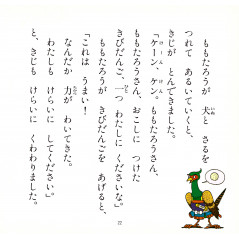 ももたろうが　犬と　さるを
つれて　あるいていくと、
きじが　とんできました。
「ケーン、ケン。ももたろうさん、
ももたろうさん、おこしに　つけた
きびだんご、一つ　わたしに　くださいな。」
ももたろうが　きびだんごを　あげると、
「これは　うまい！
なんだか　力が　わいてきた。
わたしも　けらいに　してください」
と、きじも　けらいに　くわわりました。